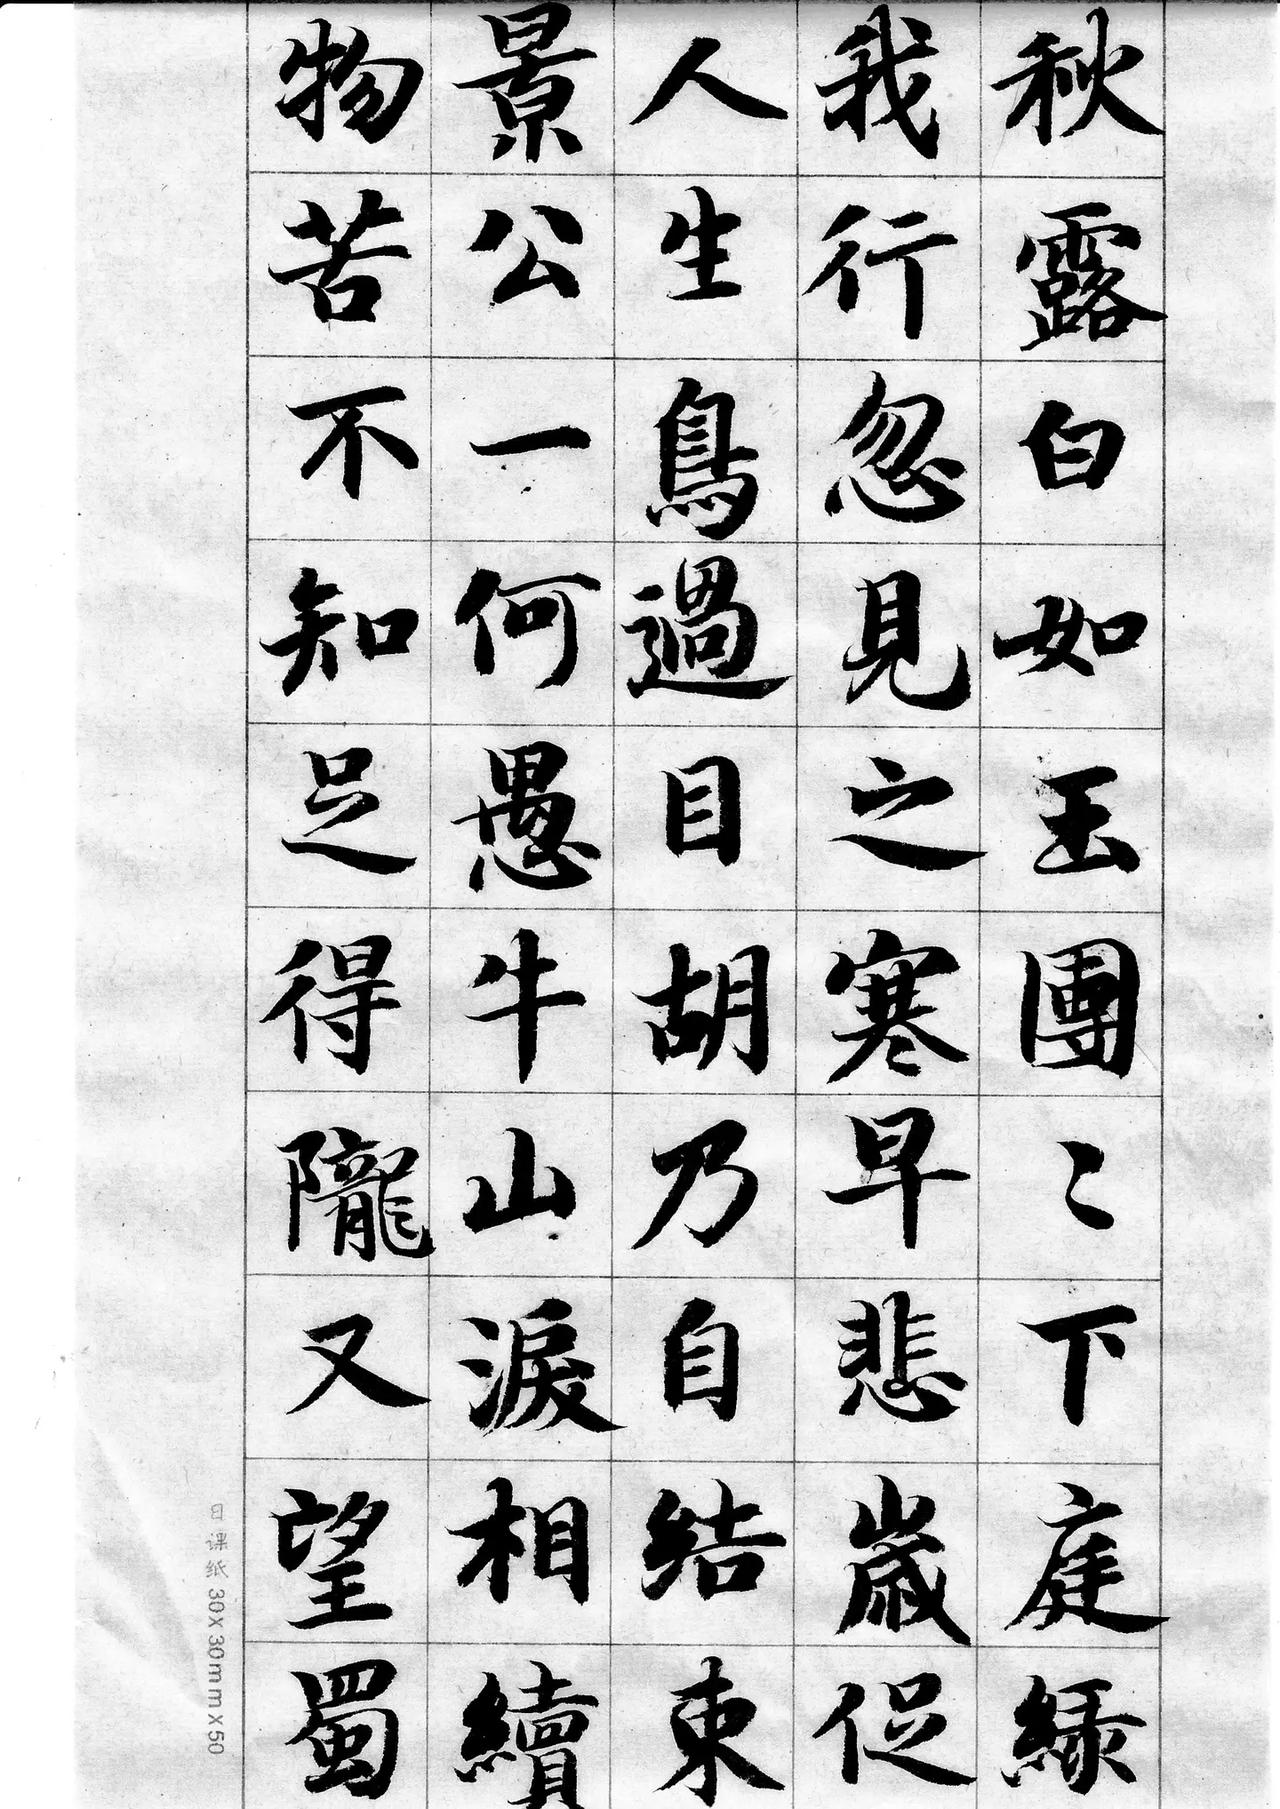 秋露白如玉團〻下庭綠
我行忽見之寒早悲歲促
人生鳥過目胡乃自結束
景公一何愚牛山淚相續
物苦不知足得隴又望蜀
日课纸 30x30mmx50